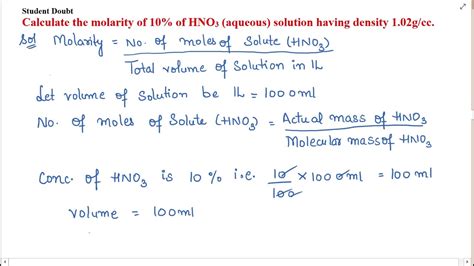 Student Doubt
Calculate the molarity of 10% of HNO₃ (aqueous) solution having density 1.02g/cc.
Sol Molarity = No. of moles of Solute (HNO₃)
Total volume of Solution in 1L
Let volume of Solution be 1L = 1000ml
No. of moles of Solute (HNO₃) = Actual mass of HNO₃
Molecular mass of HNO₃
Conc. of HNO₃ is 10% i.e. 10/100 × 1000ml = 100 ml
Volume = 100ml